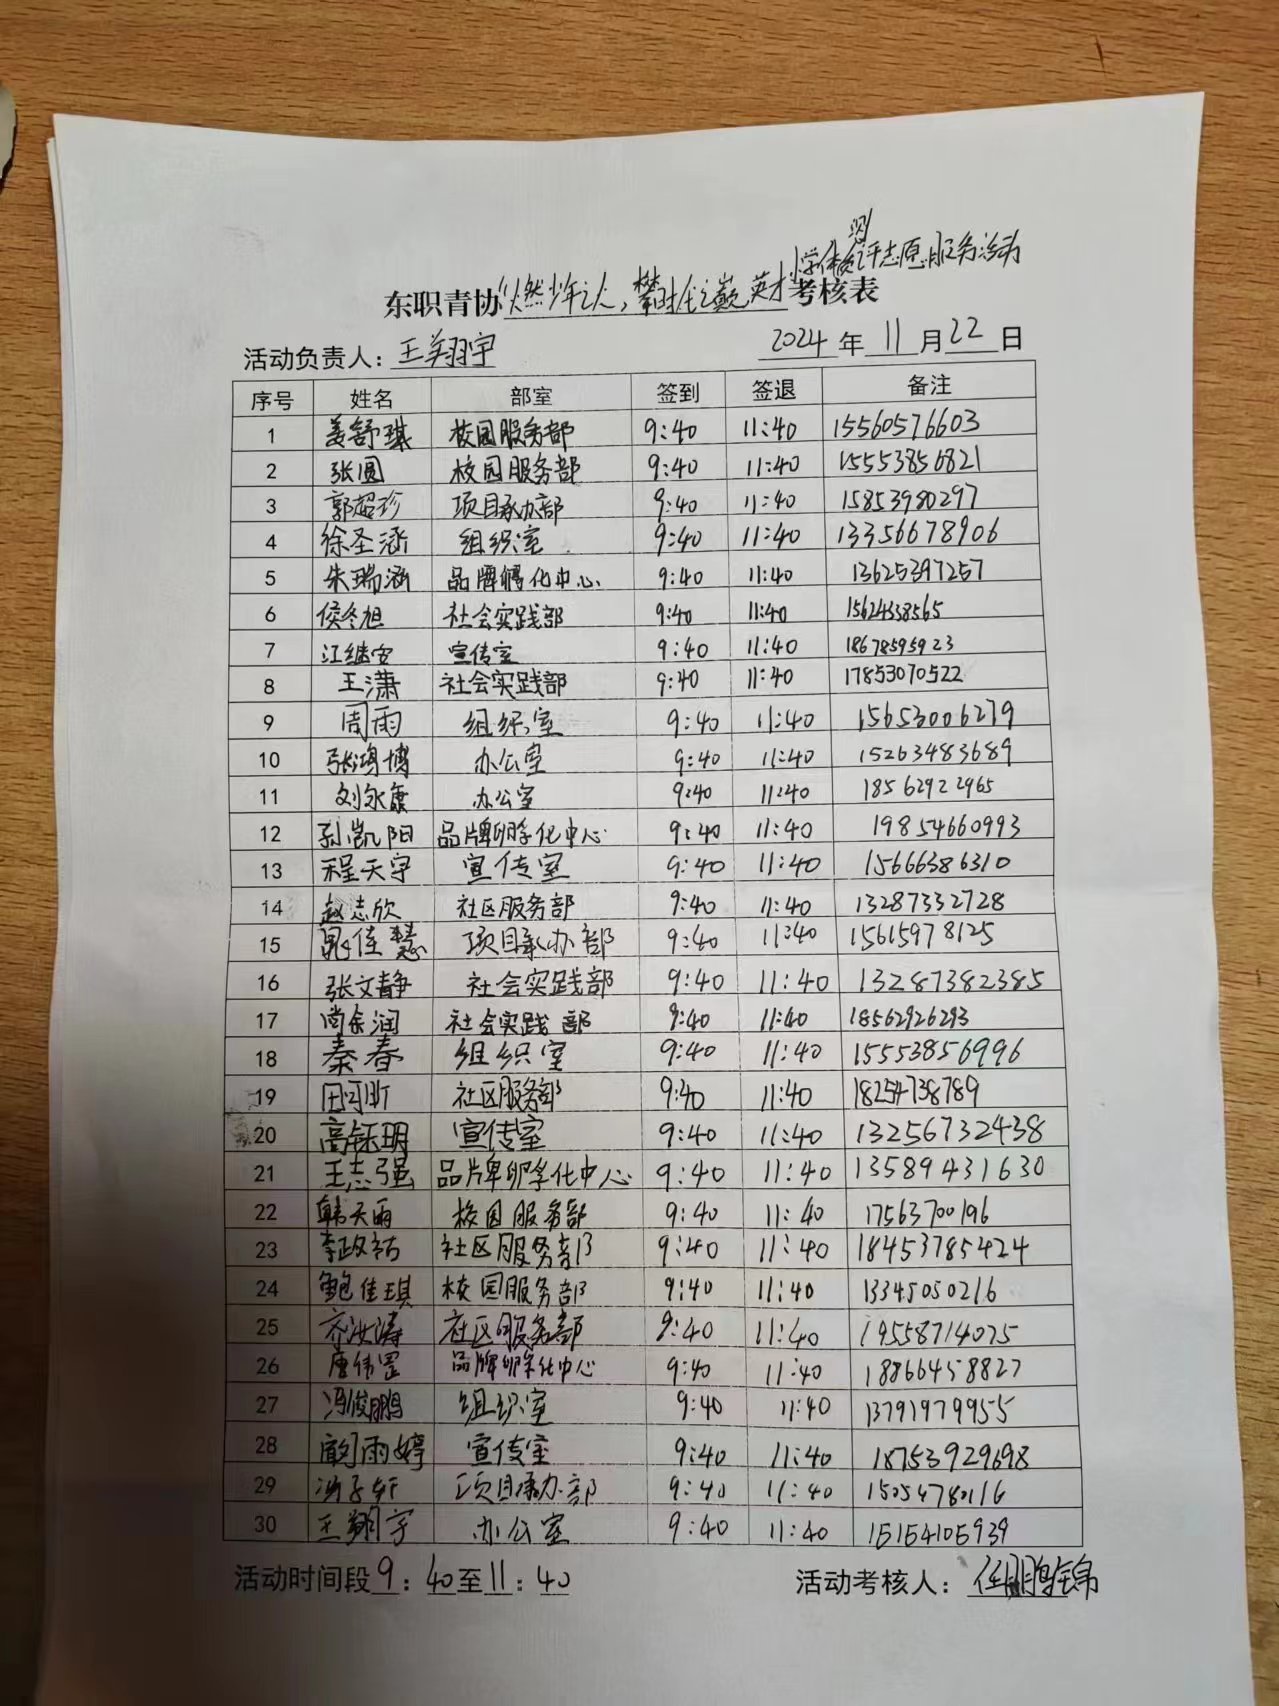 小学体质测评志愿服务活动
东职青协"燃少年之火,攀时代之巅"英才考核表
活动负责人:王翔宇 2024年11月22日
序号 姓名 部室 签到 签退 备注
1 姜舒琪 校园服务部 9:40 11:40 15560576603
2 张圆 校园服务部 9:40 11:40 15553856821
3 郭超珍 项目承办部 9:40 11:40 15853980297
4 徐圣涵 组织室 9:40 11:40 13356678906
5 朱瑞涵 品牌孵化中心 9:40 11:40 13625397257
6 侯冬旭 社会实践部 9:40 11:40 15624338565
7 江继安 宣传室 9:40 11:40 18678595923
8 王潇 社会实践部 9:40 11:40 17853070522
9 周雨 组织室 9:40 11:40 15653006279
10 张鸿博 办公室 9:40 11:40 15263483689
11 刘永康 办公室 9:40 11:40 18562922965
12 孙凯阳 品牌孵化中心 9:40 11:40 19854660993
13 程天宇 宣传室 9:40 11:40 15666386310
14 赵志欣 社区服务部 9:40 11:40 13287332728
15 佳慧 项目承办部 9:40 11:40 15615978125
16 张文静 社会实践部 9:40 11:40 13287382385
17 尚余润 社会实践部 9:40 11:40 18562926293
18 秦春 组织室 9:40 11:40 15553856996
19 田可昕 社区服务部 9:40 11:40 18254738789
20 高钰玥 宣传室 9:40 11:40 13256732438
21 王志强 品牌孵化中心 9:40 11:40 13589431630
22 韩天雨 校园服务部 9:40 11:40 17563700196
23 李政祐 社区服务部 9:40 11:40 18453785424
24 鲍佳琪 校园服务部 9:40 11:40 13345050216
25 齐汝涛 社区服务部 9:40 11:40 19558714075
26 唐伟罡 品牌孵化中心 9:40 11:40 18866458827
27 冯俊鹏 组织室 9:40 11:40 13791979955
28 雨婷 宣传室 9:40 11:40 18753929698
29 项目承办部 9:40 11:40 15054780116
30 王翔宇 办公室 9:40 11:40 15154105939
活动时间段9:40至11:40 活动考核人:任鹏锦